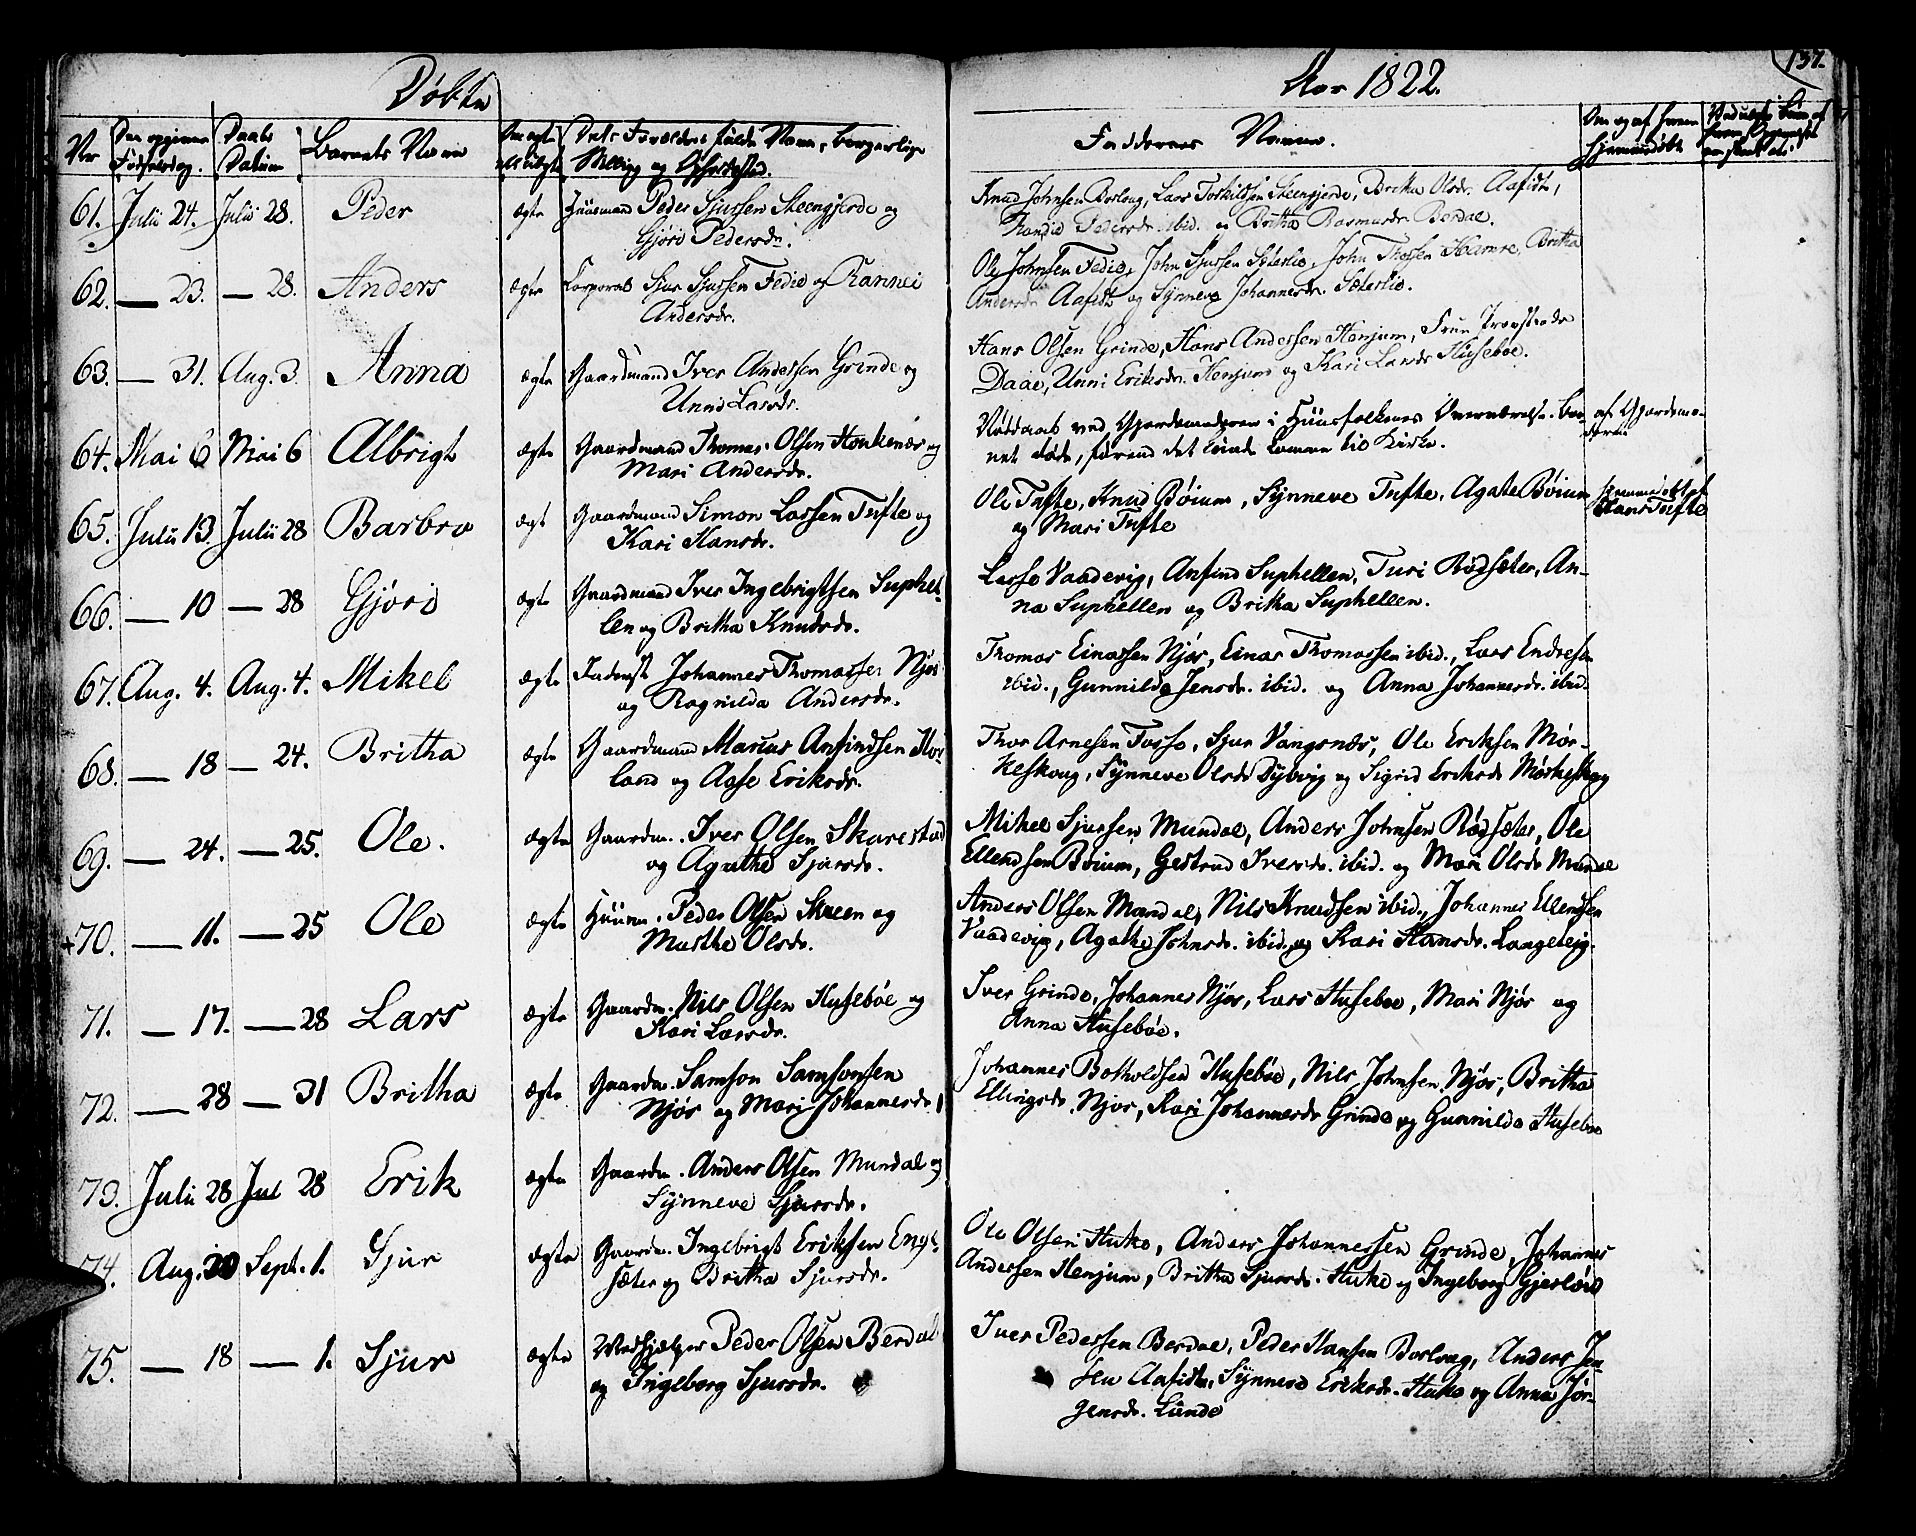 Døbte
Aar 1822.
137.
Nr
Barnets Navn
Faddernes Navne.
61. Julii 24. Julii 28. Peder ægte Huusmand Peder Sjursen Steengjerde og
Gjøri Pedersdr.
Knud Johnsen Borlaug, Lars Torkildsen Steengjerde, Britha Olsdr. Aafedt,
Randid Pedersdr. ibid. og Britha Rasmusdr. Berdal.
62. — 23. — 28. Anders ægte Corporal Sjur Sjursen Fedie og Rannei
Andersdr.
Ole Johnsen Fedie, John Sjursen Sæterlie, John Thoresen Hamre, Britha
Andersdr Aafedt og Synneva Johannesdr. Sæterlie.
63. — 31. Aug. 3. Anna ægte Gaardmand Iver Andersen Grinde og
Unni Larsdr.
Hans Olsen Grinde, Hans Andersen Henjum, Frue Provstinde
Daae, Unni Eriksdr. Henjum og Kari Larsdr Husebøe.
64. Mai 6 Mai 6 Albrigt ægte Gaardmand Thomas Olsen Hønkenæs og
Mari Andersdr.
Nøddaab ved Gjordemoderen i Huusfolkenes Overværelse. Bar-
net døde, førend det kunde komme til Kirke.
af Gjordemo-
deren
65. Julii 13. Julii 28 Barbro ægt Gaardmand Simon Larsen Tufte og
Kari Hansdr.
Ole Tufte, Knud Bøium, Synneve Tufte, Agate Bøium
og Mari Tufte
hjemmedøbt af
Hans Tufte
66. — 10 — 28 Gjøri ægte Gaardmand Iver Ingebrigtsen Suphel-
len og Britha Knudsdr.
Lasse Vaadevig, Anfind Suphellen, Turi Rødsæter, An-
na Suphellen og Britha Suphellen.
67. Aug. 4. Aug. 4. Mikel ægte Johannes Thomassen Njøs
og Ragnilda Andersdr.
Thomas Einarsen Njøs, Einar Thomassen ibid., Lars Endresen
ibid., Gunnilda Jensdr. ibid. og Anna Johannesdr. ibid.
68. — 18 — 24. Britha ægte Gaardmand Marcus Anfindsen Hov-
land og Aase Eriksdr.
Thor Arnesen Fosse, Sjur Vangsnæs, Ole Eriksen Mør-
keskoug, Synneve Olsdr Dybvig og Sigrid Eriksdr Mørkeskoug
69. — 24. — 25. Ole. ægte Gaardm. Iver Olsen Skarestad
og Agathe Sjursdr.
Mikel Sjursen Mundal, Anders Johnsen Rødsæter, Ole
Ellendsen Bøium, Gertrud Iversdr. ibid. og Mari Olsdr Mundal
+70. — 11. — 25 Ole ægte Huusm. Peder Olsen Skreen og
Marthe Olsdr.
Anders Olsen Mundal, Nils Knudsen ibid., Johannes Ellendsen
Vaadevig, Agathe Johnsdr. ibid. og Kari Hansdr. Langeteig.
71. — 17. — 28 Lars ægte Gaardm. Nils Olsen Husebøe og
Kari Larsdr.
Iver Grinde, Johannes Njøs, Lars Husebøe, Mari Njøs og
Anna Husebøe.
72. — 28 — 31 Britha ægte Gaardm. Samson Samsonsen
Njøs og Mari Johannesdr.
Johannes Botholdsen Husebøe, Nils Johnsen Njøs, Britha
Ellingsdr. Njøs, Kari Johannesdr Grinde og Gunnilda Husebøe
73. Julii 28 Jul 28 Erik ægte Gaardm. Anders Olsen Mundal og
Synneve Sjursdr.
74. Aug. 20 Sept. 1. Sjur ægte Gaardm. Ingebrigt Eriksen Enge-
sæter og Britha Sjursdr.
Ole Olsen Huke, Anders Johannessen Grinde, Johannes
Andersen Henjum, Britha Sjursdr. Huke og Ingeborg Gjesløw
75. — 18 — 1. Sjur ægte Medhjælper Peder Olsen Berdal
og Ingeborg Sjursdr.
Iver Pedersen Berdal, Peder Hansen Borlaug, Anders Jen-
sen Aafedt, Synneve Eriksdr. Huke og Anna Jør-
gensdr. Lunde